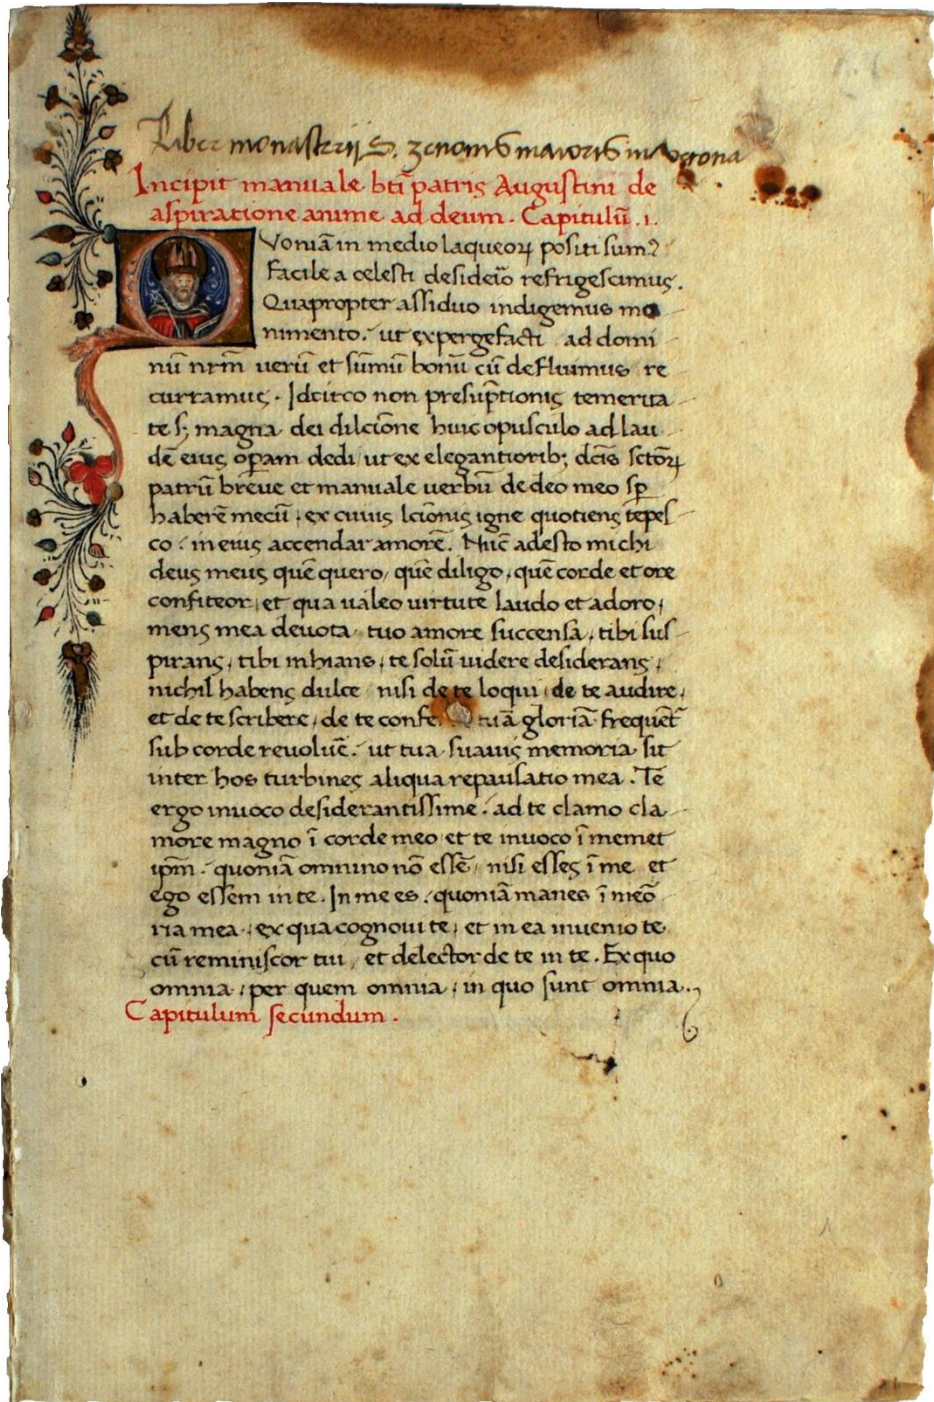 Liber monasterij S. zenonis maioris in Verona
Incipit manuale bti patris Augustini de
aspiratione anime ad deum. Capitulū .1.
Voniā in medio laqueoꝝ positi sumꝰ
facile a celesti desideīo refrigescimus.
Quapropter assiduo indigemus mo
nimento. ut expergefacti ad domi
nū nrm̄ uerū et sūmū bonū cū defluimus re
curramus. Idcirco non presūptionis temerita
te sꝫ magna dei dilcīone huic opusculo ad lau
dē eius opam dedi, ut ex elegantioribꝫ dcīs sctōꝝ
patrū breue et manuale uerbū de deo meo sp̄
haberē mecū, ex cuius lcīonis igne quotiens tepes
co, in eius accendar amorē. Nūc adesto michi
deus meus quē quero, quē diligo, quē corde et ore
confiteor, et qua ualeo uirtute laudo et adoro,
mens mea deuota tuo amore succensa, tibi sus
pirans, tibi inhians, te solū uidere desiderans,
nichil habens dulce nisi de te loqui, de te audire,
et de te scribere, de te confe tuā gloriā frequēt̄
sub corde reuoluē. ut tua suauis memoria sit
inter hos turbines aliqua repausatio mea. Te
ergo inuoco desiderantissime. ad te clamo cla
more magno ī corde meo et te inuoco ī memet
ipm̄. quoniā omnino nō essē, nisi esses ī me et
ego essem in te. In me es. quoniā manes ī meō
ria mea, ex qua cognoui te, et in ea inuenio te
cū reminiscor tui, et delector de te in te. Ex quo
omnia, per quem omnia, in quo sunt omnia.
Capitulum secundum.